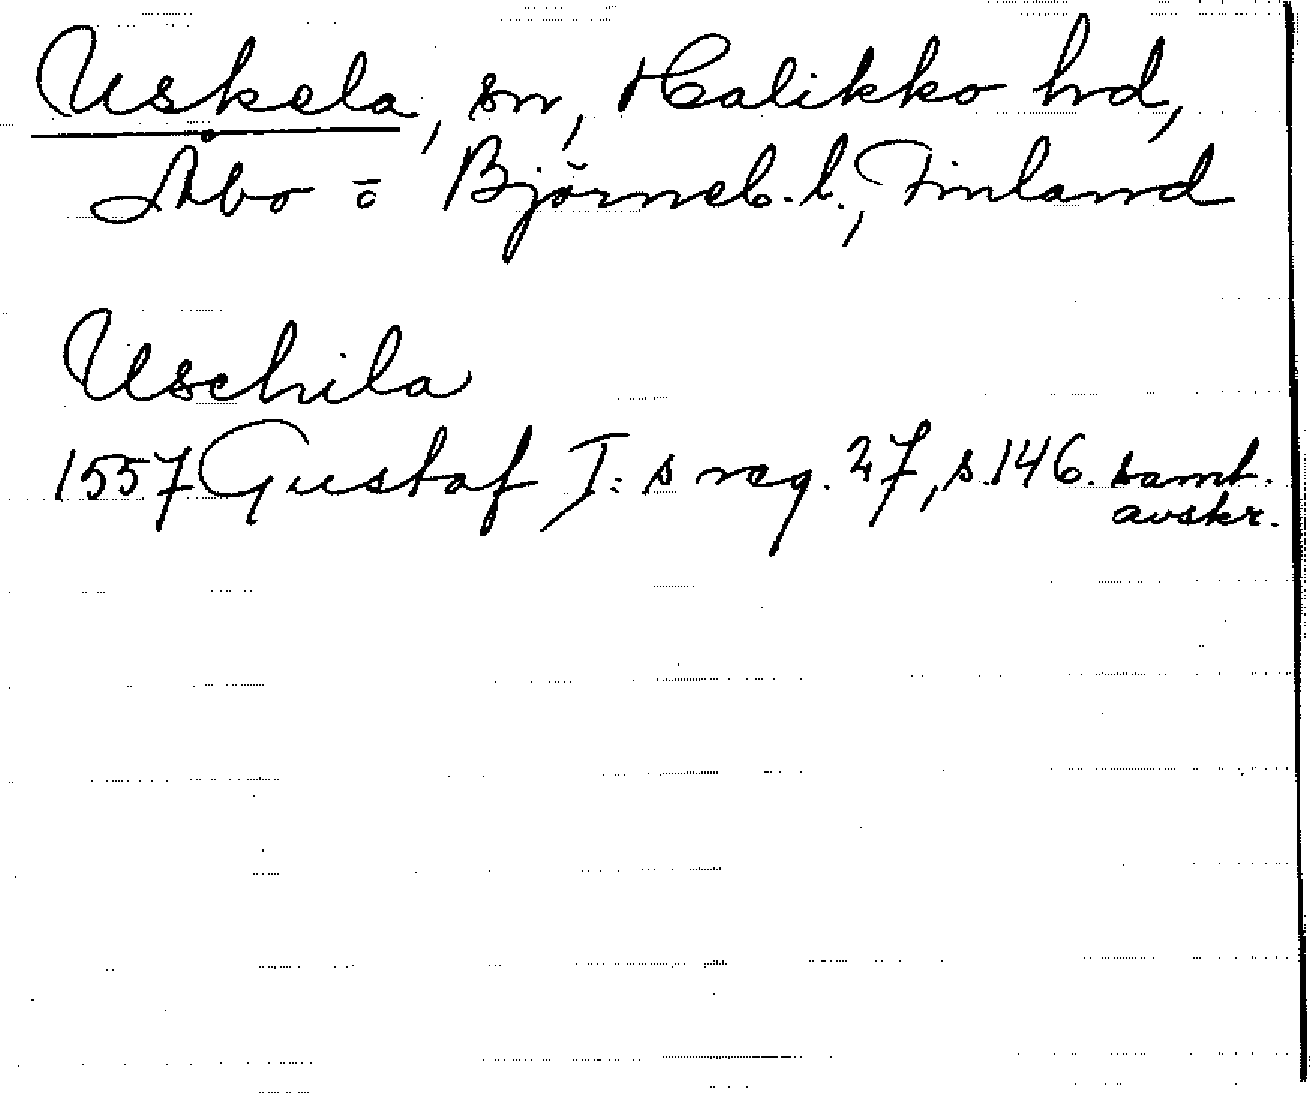 Uskela, sn, Halikko hd,
Åbo o Björneb. l., Finland
Uschila
1557 Gustaf I:s reg. 27, s. 146. samt.
avskr.